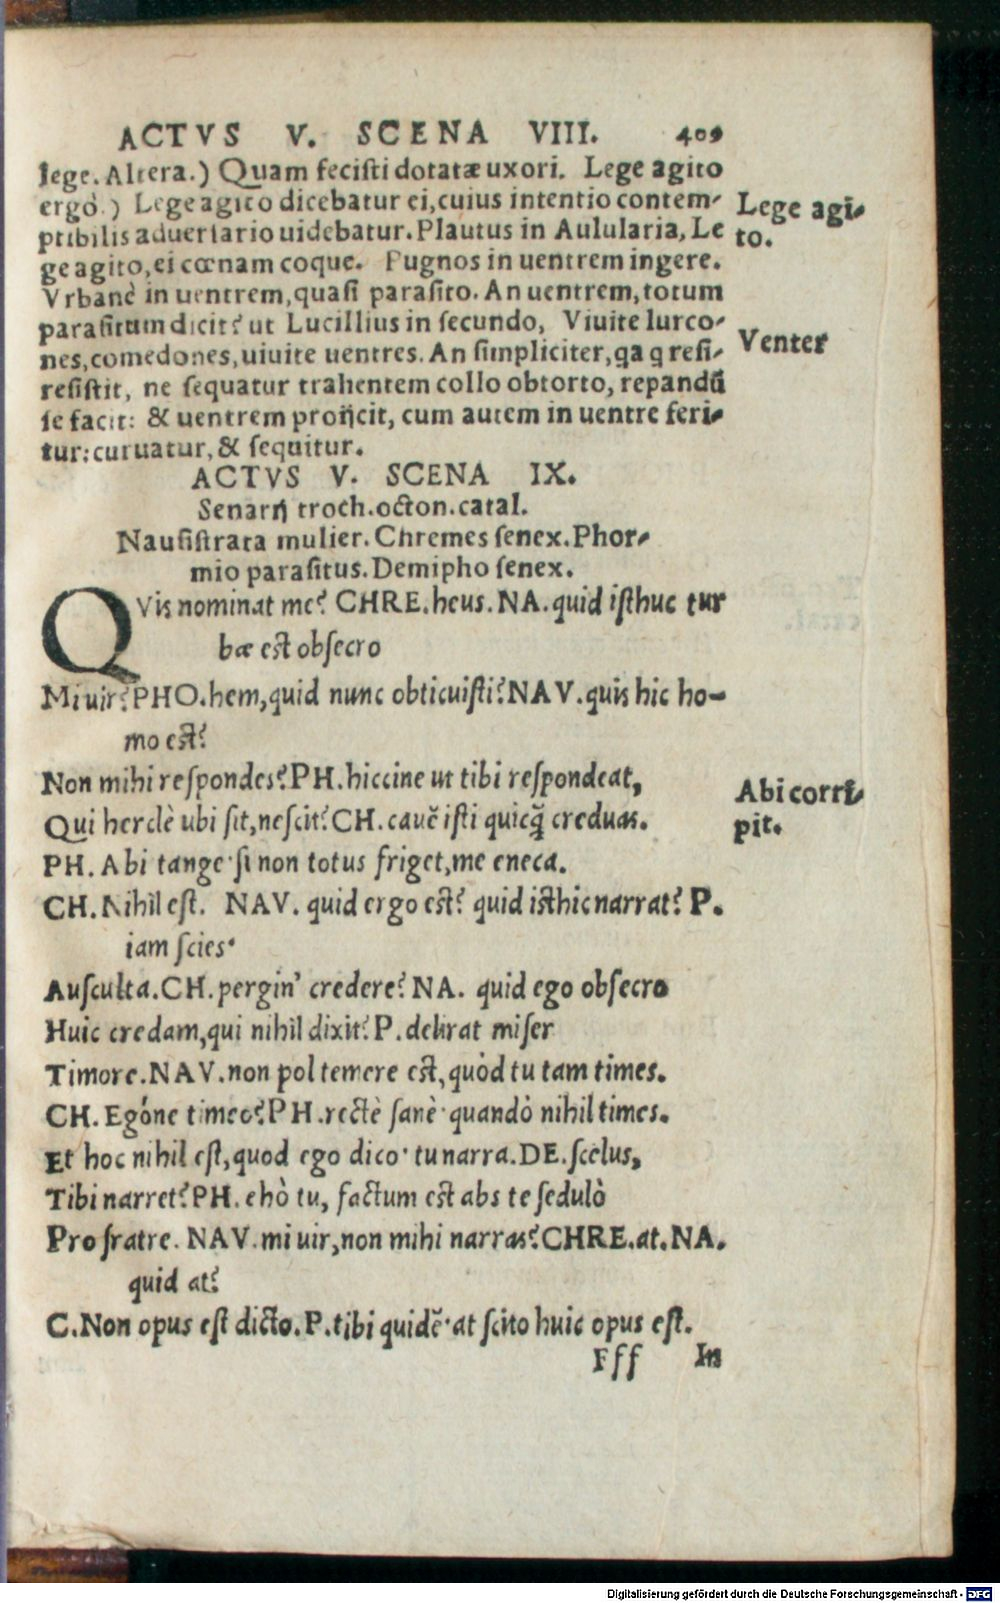 ACTVS V. SCENA VIII. 409
lege. Altera.) Quam fecisti dotatæ uxori. Lege agito
ergò.) Lege agito dicebatur ei, cuius intentio contem-
ptibilis aduersario uidebatur. Plautus in Aulularia, Le
ge agito, ei cœnam coque. Pugnos in uentrem ingere.
Vrbanè in uentrem, quasi parasito. An uentrem, totum
parasitum dicit? ut Lucillius in secundo, Viuite lurco-
nes, comedones, uiuite uentres. An simpliciter, qa q resi-
resistit, ne sequatur trahentem collo obtorto, repandū
se facit: & uentrem proijcit, cum autem in uentre feri-
tur: curuatur, & sequitur.
Lege agi-
to.
Venter
ACTVS V. SCENA IX.
Senarij troch. octon. catal.
Nausistrata mulier. Chremes senex. Phor-
mio parasitus. Demipho senex.
QVis nominat me? CHRE. heus. NA. quid isthuc tur
bæ est obsecro
Mi uir? PHO. hem, quid nunc obticuisti? NAV. quis hic ho-
mo est?
Non mihi respondes? PH. hiccine ut tibi respondeat,
Qui herclè ubi sit, nescit? CH. cauē isti quicq̃ creduas.
PH. Abi tange· si non totus friget, me eneca.
CH. Nihil est. NAV. quid ergo est? quid isthic narrat? P.
iam scies·
Ausculta. CH. pergin' credere? NA. quid ego obsecro
Huic credam, qui nihil dixit? P. delirat miser
Timore. NAV. non pol temere est, quòd tu tam times.
CH. Egóne timeo? PH. rectè sanè· quandò nihil times.
Et hoc nihil est, quod ego dico· tu narra. DE. scelus,
Tibi narret? PH. ehò tu, factum est abs te sedulò
Pro fratre. NAV. mi uir, non mihi narras? CHRE. at. NA.
quid at?
C. Non opus est dicto. P. tibi quidē· at scito huic opus est.
Abi corri-
pit.
Fff In
Digitalisierung gefördert durch die Deutsche Forschungsgemeinschaft - DFG